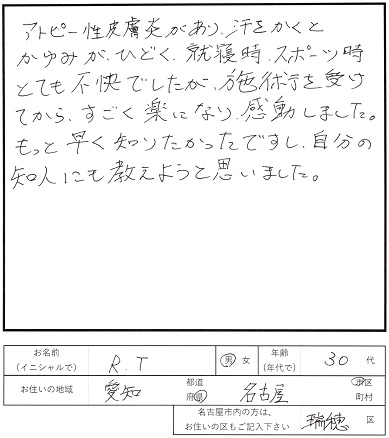 アトピー性皮膚炎があり、汗をかくと
かゆみが、ひどく、就寝時、スポーツ時
とても不快でしたが、施術を受け
てから、すごく楽になり、感動しました。
もっと早く知りたかったですし、自分の
知人にも教えようと思いました。
お名前
(イニシャルで)
R.T
男 女
年齢
(年代で)
30 代
お住いの地域
愛知
都道
府県
名古屋
市区
町村
名古屋市内の方は、
お住いの区もご記入下さい
瑞穂 区